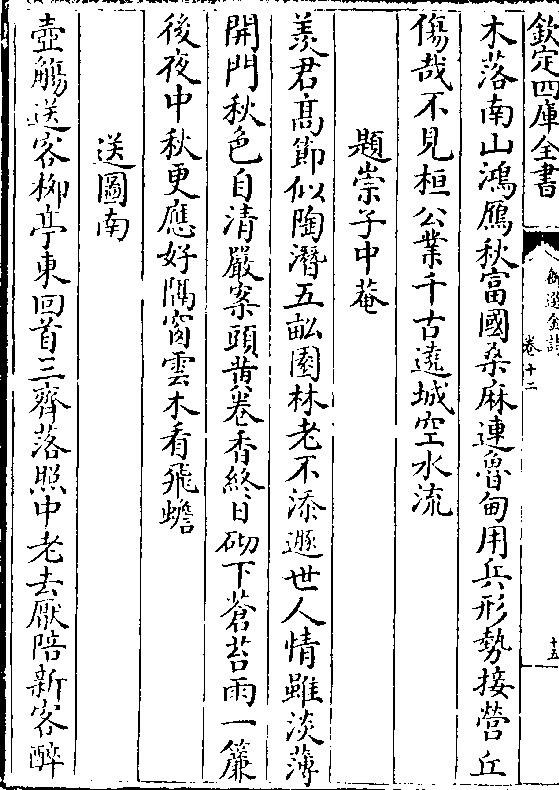 欽定四庫全書
御選金詩
卷十二
十五
木落南山鴻鴈秋富國桑麻連魯甸用兵形勢接營丘
傷哉不見桓公業千古遶城空水流
題崇子中菴
羨君髙節似陶潛五畝園林老不添遯世人情雖淡薄
開門秋色自清嚴案頭黄卷香終日砌下蒼苔雨一簾
後夜中秋更應好隔窗雲木看飛蟾
送圖南
壺觴送客柳亭東回首三齊落照中老去厭陪新客醉